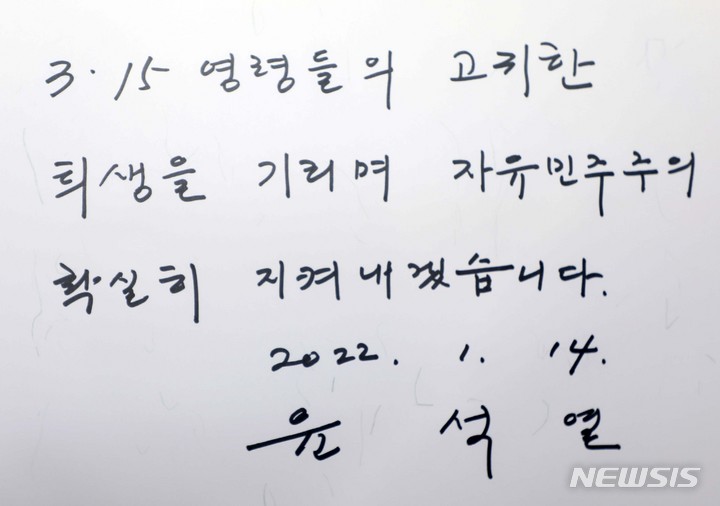 3·15 영령들의 고귀한
희생을 기리며 자유민주주의
확실히 지켜내겠습니다.
2022. 1. 14.
윤석열
NEWSIS